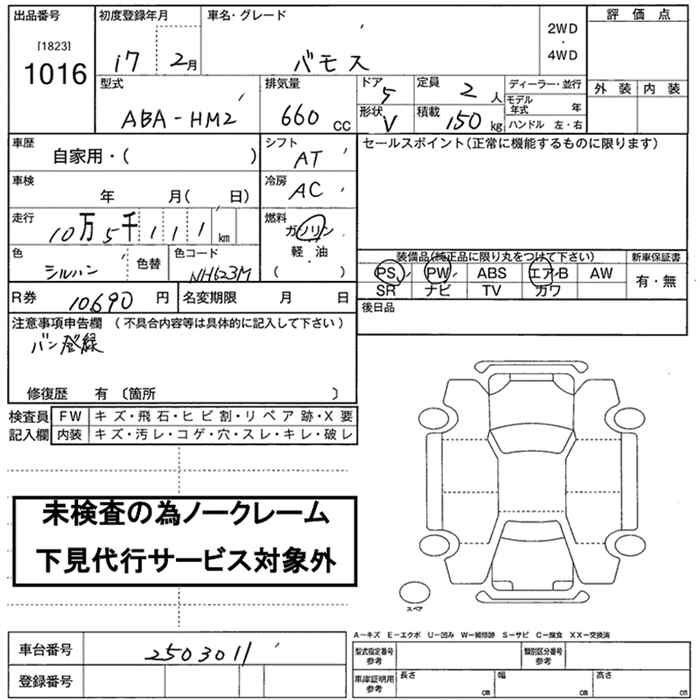 出品番号 初度登録年月 車名・グレード 評価点
[1823]
1016
17 2月 バモス 2WD ・ 4WD
型式 排気量 ドア 定員 ディーラー・並行 外装 内装
5 2人 モデル年式 年
ABA-HM2 660 CC 形状 V 積載 150 kg ハンドル 左・右
車歴 シフト セールスポイント(正常に機能するものに限ります)
自家用・( ) AT
車検 冷房
年 月( 日) AC
走行 燃料
10万5千111km ガソリン
軽・油
( )
色 色替 色コード 装備品(純正品に限り丸をつけて下さい) 新車保証書
NH623M PS PW ABS エアB AW 有・無
SR ナビ TV カワ
R券 10,690円 名変期限 月 日 後日品
注意事項申告欄 (不具合内容等は具体的に記入して下さい)
バン登録
修復歴 有 〔箇所 〕
検査員 FW キズ・飛石・ヒビ割・リペア跡・X要
記入欄 内装 キズ・汚レ・コゲ・穴・スレ・キレ・破レ
未検査の為ノークレーム
下見代行サービス対象外
スペア
A-キズ E-エクボ U-凹み W-補修跡 S-サビ C-腐食 XX-交換済
車台番号 2503011 型式指定番号 参考 類別区分番号 参考
登録番号 車庫証明用 参考 長さ cm 幅 cm 高さ cm